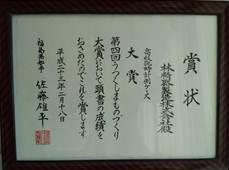 賞状
林精器製造株式会社殿
ケース
大賞
第四回うつくしまものづくり
大賞において頭書の成績を
おさめたのでこれを賞します
平成二十三年二月十八日
福島県知事 佐藤雄平